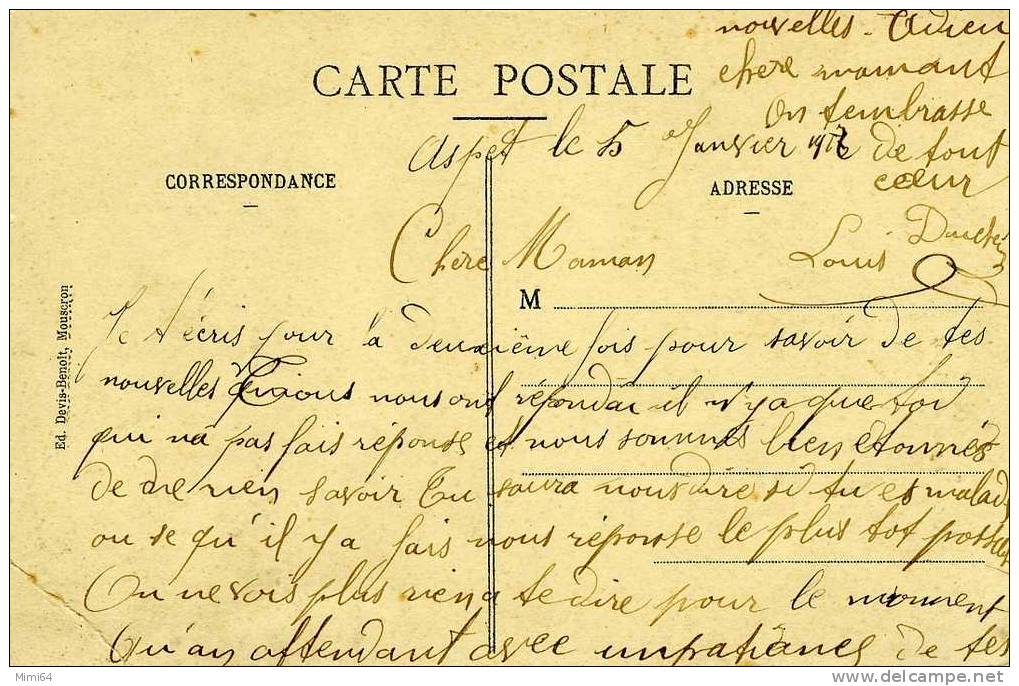 CARTE POSTALE
CORRESPONDANCE
ADRESSE
M
Ed. Devis-Benoit, Mouscron
Aspet le 5 Janvier
Chere Maman
Je t'écris pour la deuxième fois pour savoir de tes
nouvelles nous ont répondai il n'y a que toi
qui na pas fais réponse et nous sommes bien étonnés
de ne rien savoir Tu saura nous dire si tu es malade
ou se qu'il y a fais nous réponse le plus tot possible
On ne vois plus rien a te dire pour le moment
Qu'an attendant avec unpatiance de tes
nouvelles - Adieu
chere mamant
On tembrasse
de tout
cœur
Louis
Mimi64
delcampe.net